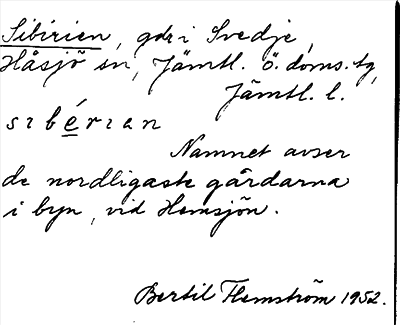 Sibirien, gdr i Svedje,
Håsjö sn, Jämtl. ö. doms. tg,
Jämtl. l.
sıbérıan
Namnet avser
de nordligaste gårdarna
i byn, vid Hemsjön.
Bertil Flemström 1952.